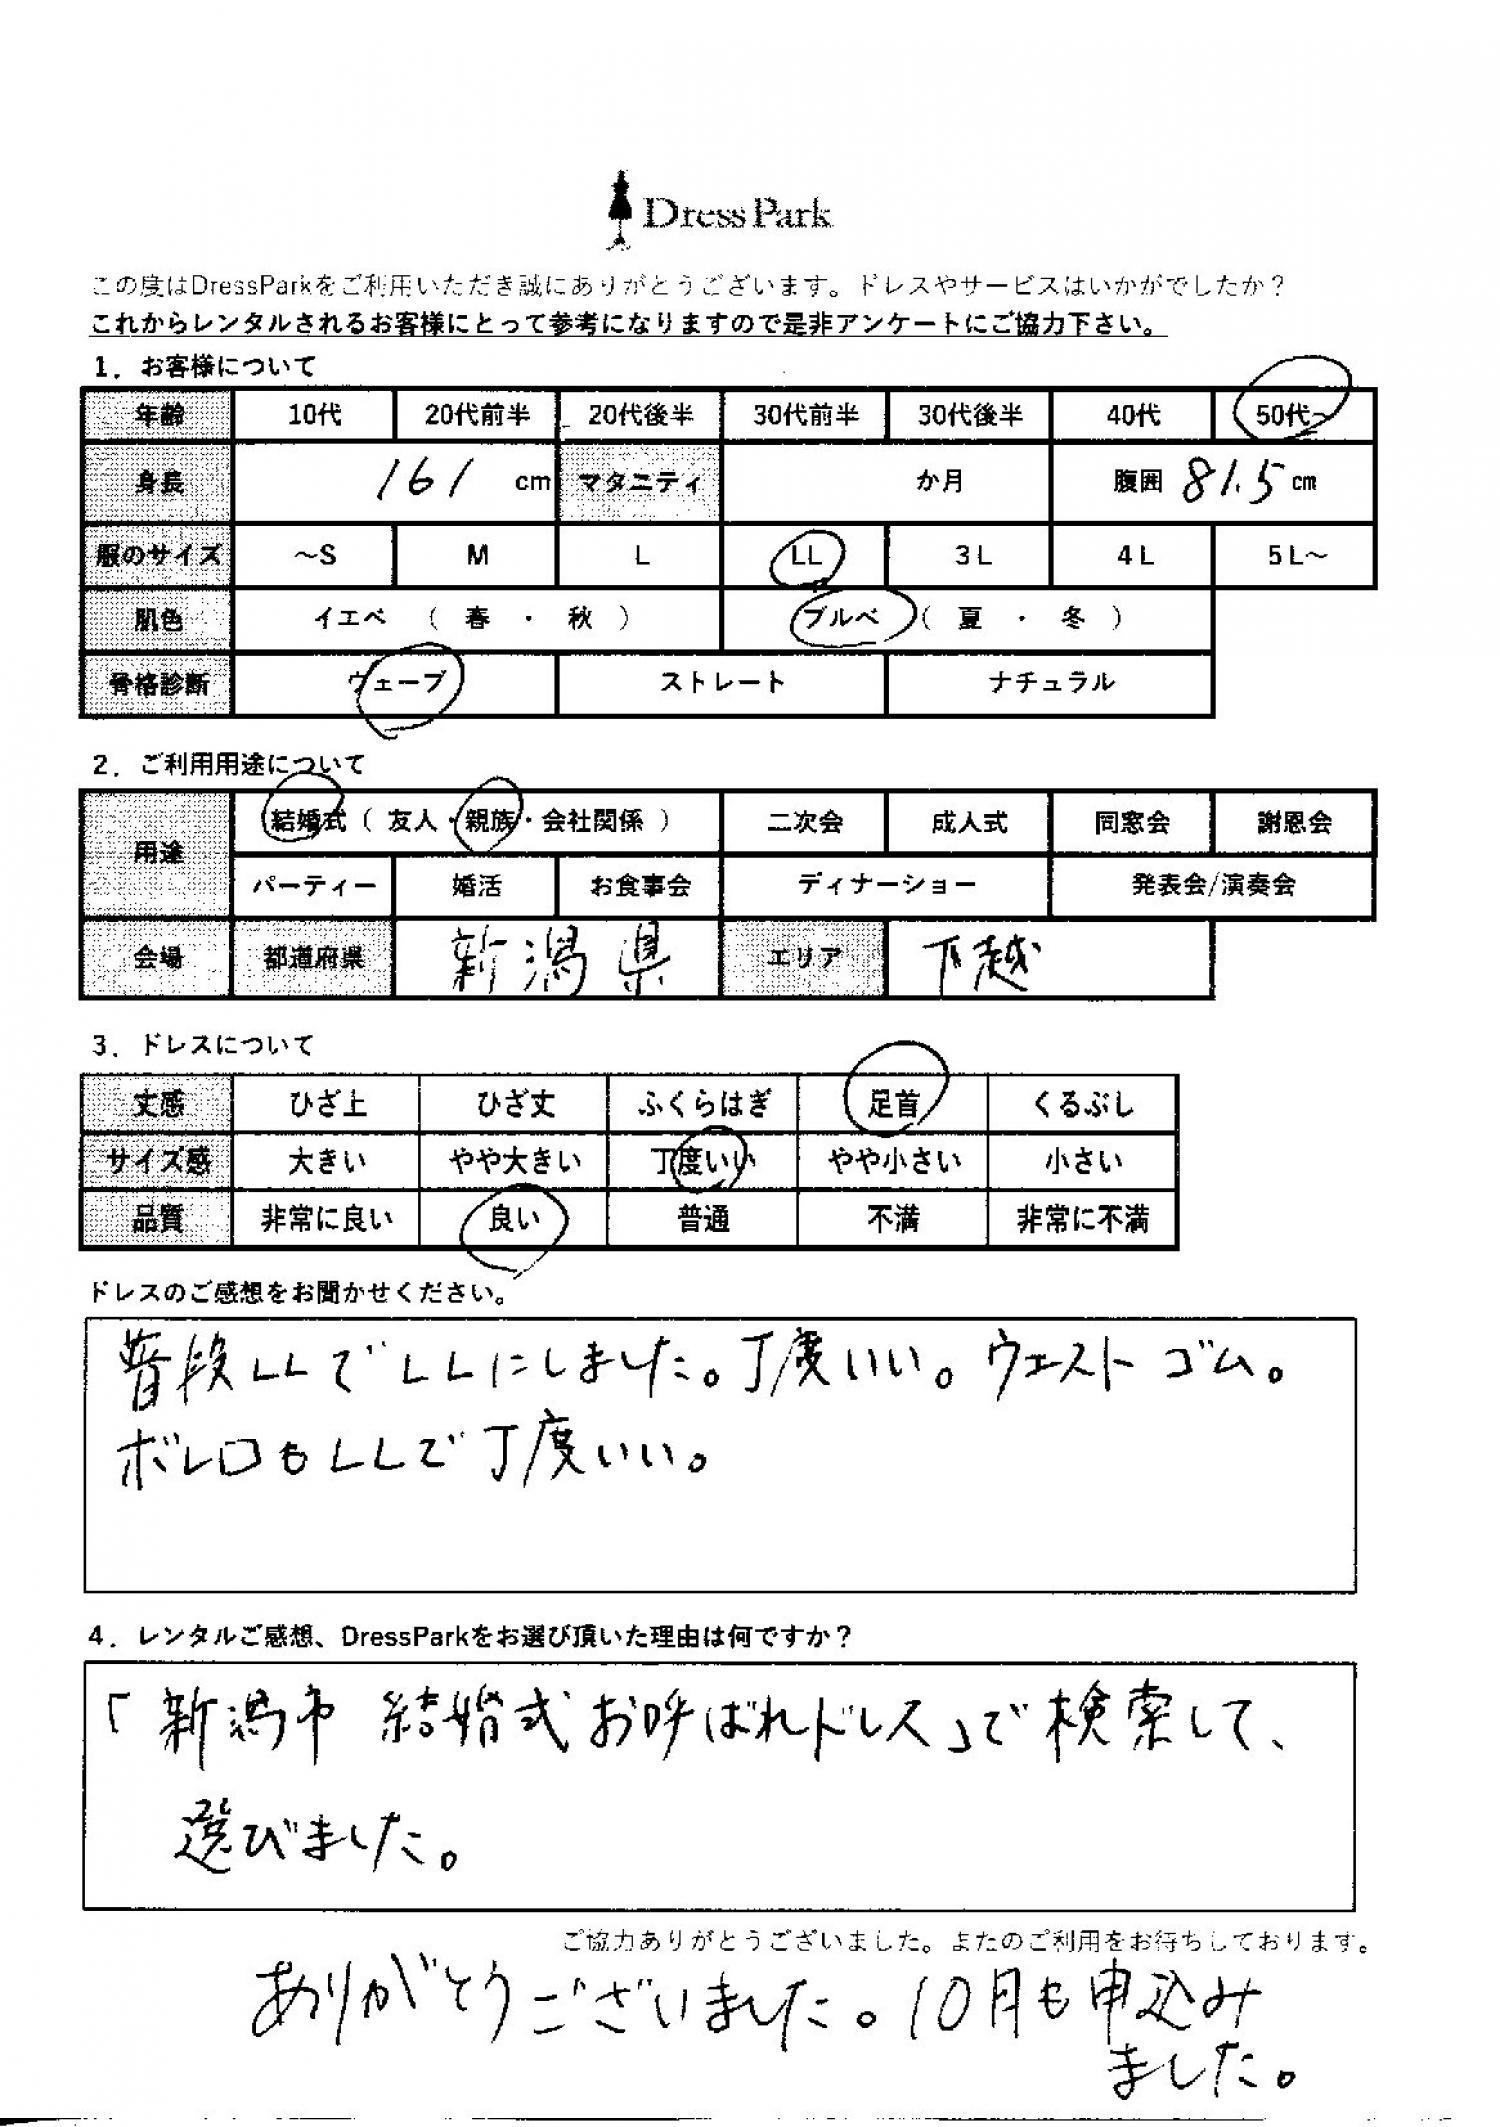 DressPark
この度はDressParkをご利用いただき誠にありがとうございます。ドレスやサービスはいかがでしたか？
これからレンタルされるお客様にとって参考になりますので是非アンケートにご協力下さい。
1．お客様について
年齢 10代 20代前半 20代後半 30代前半 30代後半 40代 50代～
身長 161 cm マタニティ か月 腹囲 81.5 cm
服のサイズ ～S M L LL 3L 4L 5L～
肌色 イエベ （ 春 ・ 秋 ） ブルベ （ 夏 ・ 冬 ）
骨格診断 ウェーブ ストレート ナチュラル
2．ご利用用途について
用途 結婚式（ 友人・親族・会社関係 ） 二次会 成人式 同窓会 謝恩会
パーティー 婚活 お食事会 ディナーショー 発表会/演奏会
会場 都道府県 新潟県 エリア 下越
3．ドレスについて
丈感 ひざ上 ひざ丈 ふくらはぎ 足首 くるぶし
サイズ感 大きい やや大きい 丁度いい やや小さい 小さい
品質 非常に良い 良い 普通 不満 非常に不満
ドレスのご感想をお聞かせください。
普段LLでLLにしました。丁度いい。ウエストゴム。
ボレロもLLで丁度いい。
4．レンタルご感想、DressParkをお選び頂いた理由は何ですか？
「新潟市 結婚式お呼ばれドレス」で検索して、
選びました。
ご協力ありがとうございました。またのご利用をお待ちしております。
ありがとうございました。10月も申込み
ました。